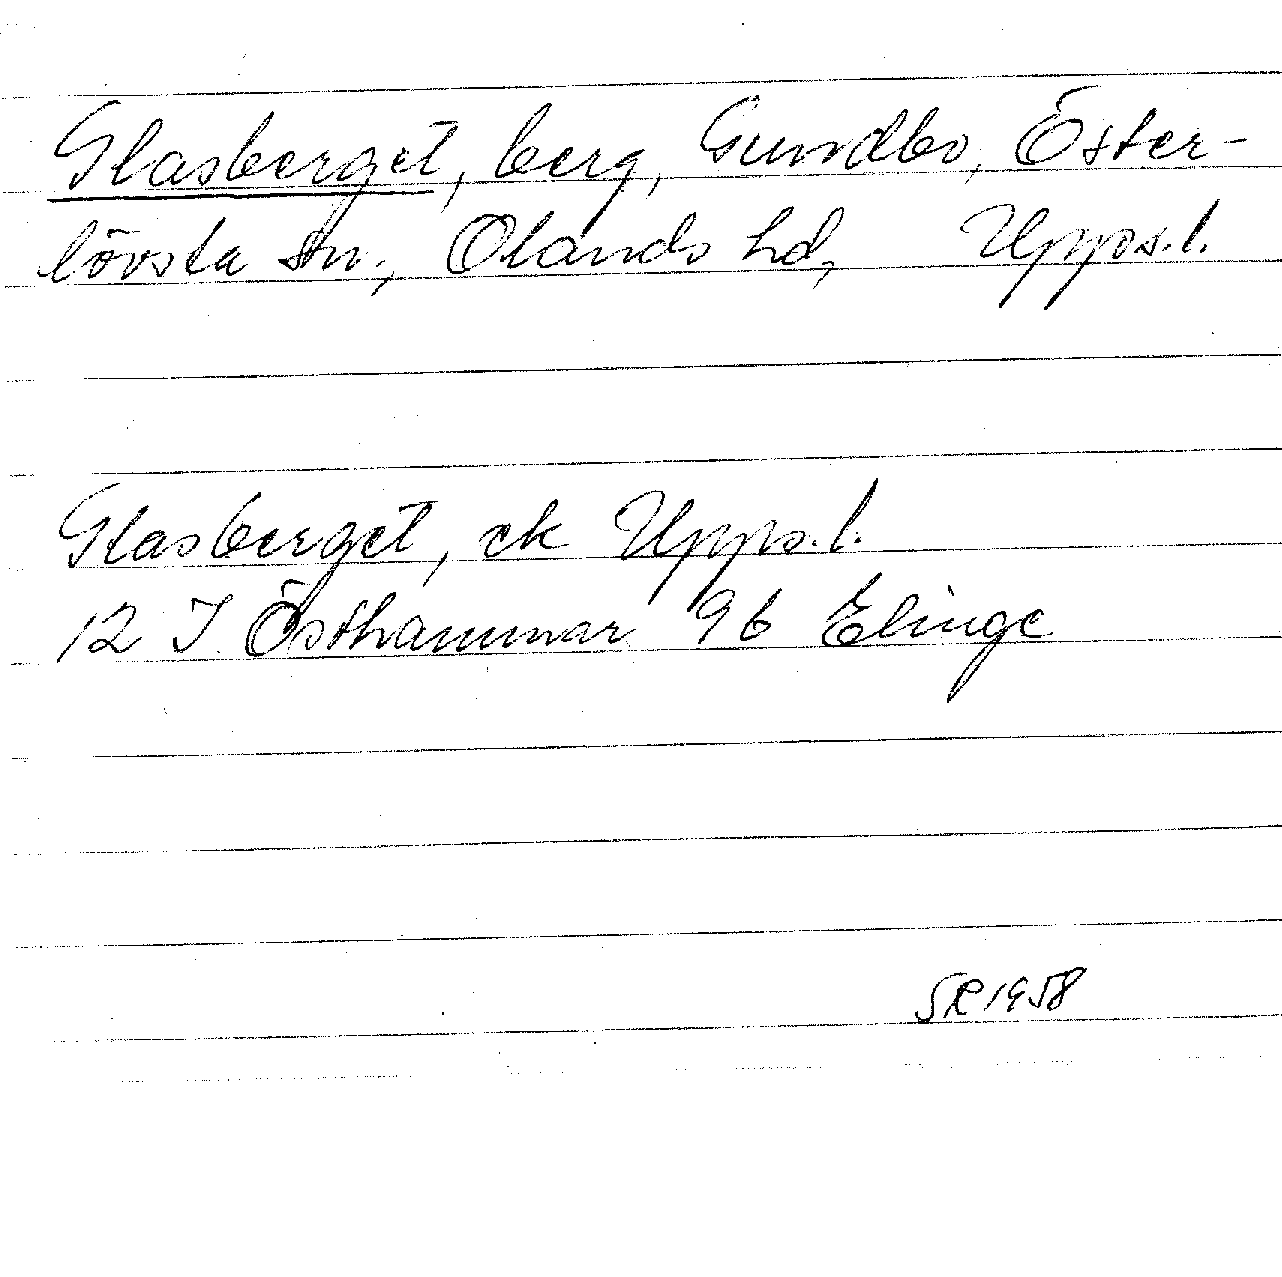 Glasberget, berg, Gundbo, Öster-
lövsta sn., Olands hd, Upps.l.
Glasberget, ek Upps.l.
12 I Östhammar 9b Elinge
SR 1958